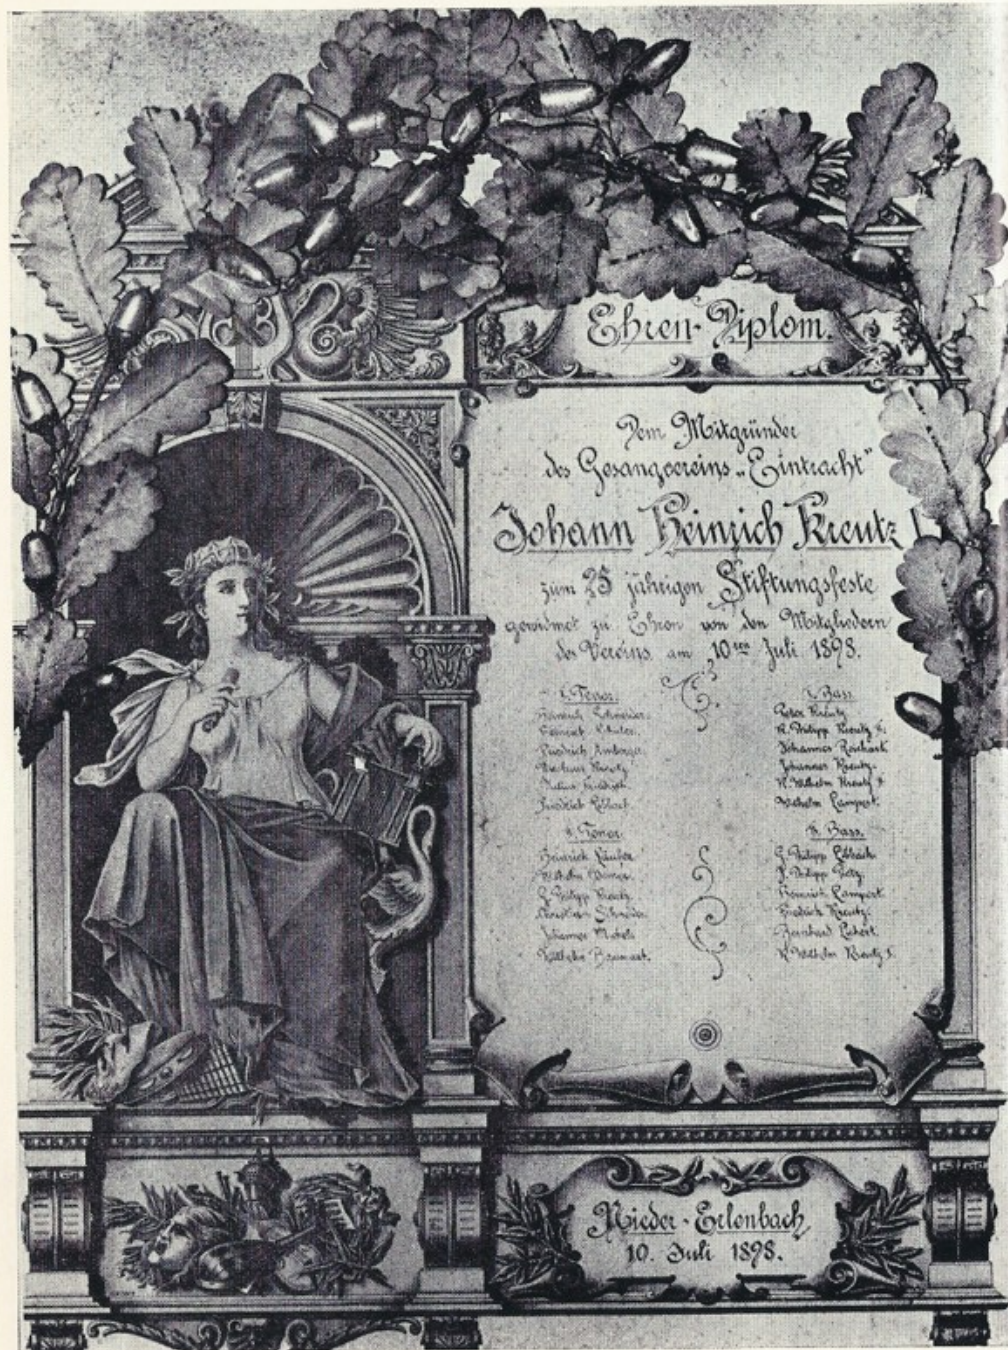 Ehren-Diplom.
Dem Mitgründer
des Gesangvereins „Eintracht"
Johann Heinrich Kreutz
zum 25 jährigen Stiftungsfeste
gewidmet zu Ehren von den Mitgliedern
des Vereins, am 10ten Juli 1898.
I. Tenor.
Heinrich
Heinrich
Friedrich
Kreutz
Friedrich
II. Tenor.
Heinrich
Wilhelm
G. Philipp Kreutz
Christian Schneider.
Johannes
Wilhelm
I. Bass.
Peter Kreutz
K. Philipp Kreutz
Johannes Reichart
Johannes Kreutz.
K. Wilhelm Kreutz
Wilhelm Lampert.
II. Bass.
G. Philipp
P. Philipp
Heinrich Lampert.
Friedrich Kreutz.
Bernhard
K. Wilhelm Kreutz
Nieder-Erlenbach,
10. Juli 1898.